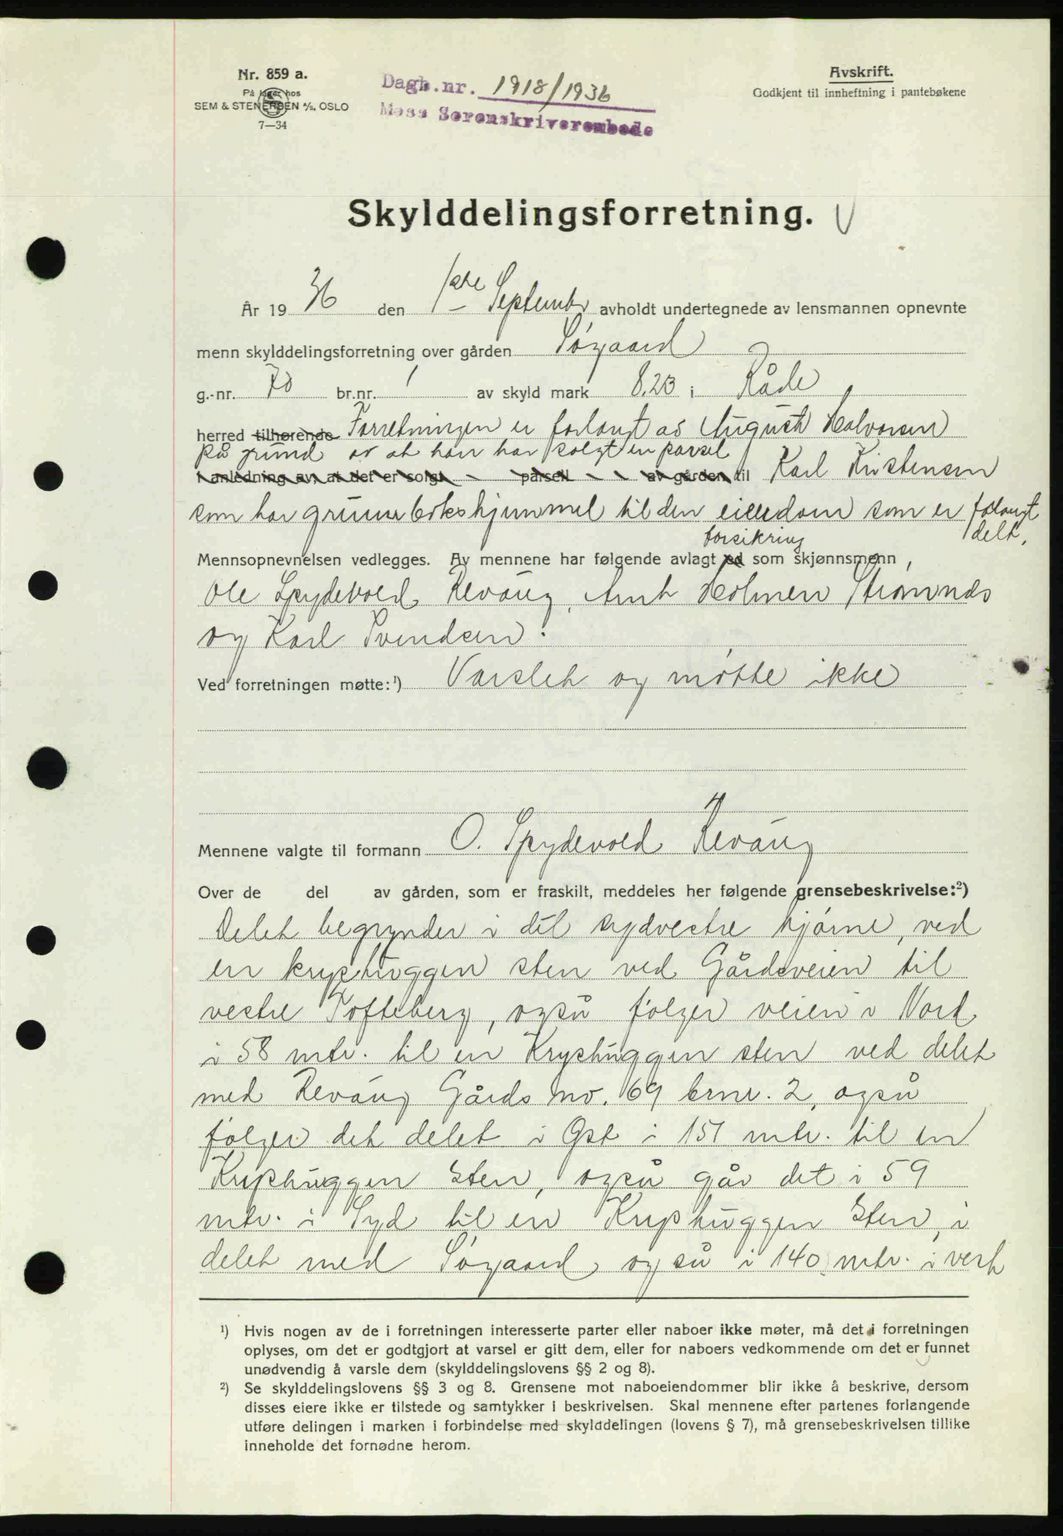 Nr. 859 a.
På lager hos
SEM & STENERSEN A/S. OSLO
7—34
Dagb.nr. 1918/1936
Moss Sorenskriverembede
Avskrift.
Godkjent til innheftning i pantebøkene
Skylddelingsforretning.
År 19 36 den 1ste September avholdt undertegnede av lensmannen opnevnte
menn skylddelingsforretning over gården Søgaard
g.-nr. 70 br.nr. 1 av skyld mark 8.23 i Råde
herred tilhørende Forretningen er forlangt av August Halvorsen
på grund av at han har solgt en parsel
i anledning av, at det er solgt - parsell - - av gården til Karl Kristensen
som har grunnbokshjemmel til den eiendom som er forlangt
delt.
forsikring
Mennsopnevnelsen vedlegges. Av mennene har følgende avlagt ed som skjønnsmenn,
Ole Spydevold Revaug, Arnt Holmen Strømnes
og Karl Svendsen.
Ved forretningen møtte:¹) Varslet og møtte ikke
Mennene valgte til formann O. Spydevold Revaug
Over de del av gården, som er fraskilt, meddeles her følgende grensebeskrivelse:²)
Delet begynder i det sydvestre hjørne, ved
en kryshuggen sten ved Gårdsveien til
vestre Tofteberg, også følger veien i Nord
i 58 mtr. til en Kryshuggen sten ved delet
med Revaug Gårds no. 69 brnr. 2, også
følger det delet i Øst i 151 mtr. til en
Kryshuggen Sten, også går det i 59
mtr. i Syd til en Kryshuggen Sten i
delet med Søgaard også i 140 mtr. i vest
¹) Hvis nogen av de i forretningen interesserte parter eller naboer ikke møter, må det i forretningen
oplyses, om det er godtgjort at varsel er gitt dem, eller for naboers vedkommende om det er funnet
unødvendig å varsle dem (skylddelingslovens §§ 2 og 8).
²) Se skylddelingslovens §§ 3 og 8. Grensene mot naboeiendommer blir ikke å beskrive, dersom
disses eiere ikke er tilstede og samtykker i beskrivelsen. Skal mennene efter partenes forlangende
utføre delingen i marken i forbindelse med skylddelingen (lovens § 7), må grensebeskrivelsen tillike
inneholde det fornødne herom.